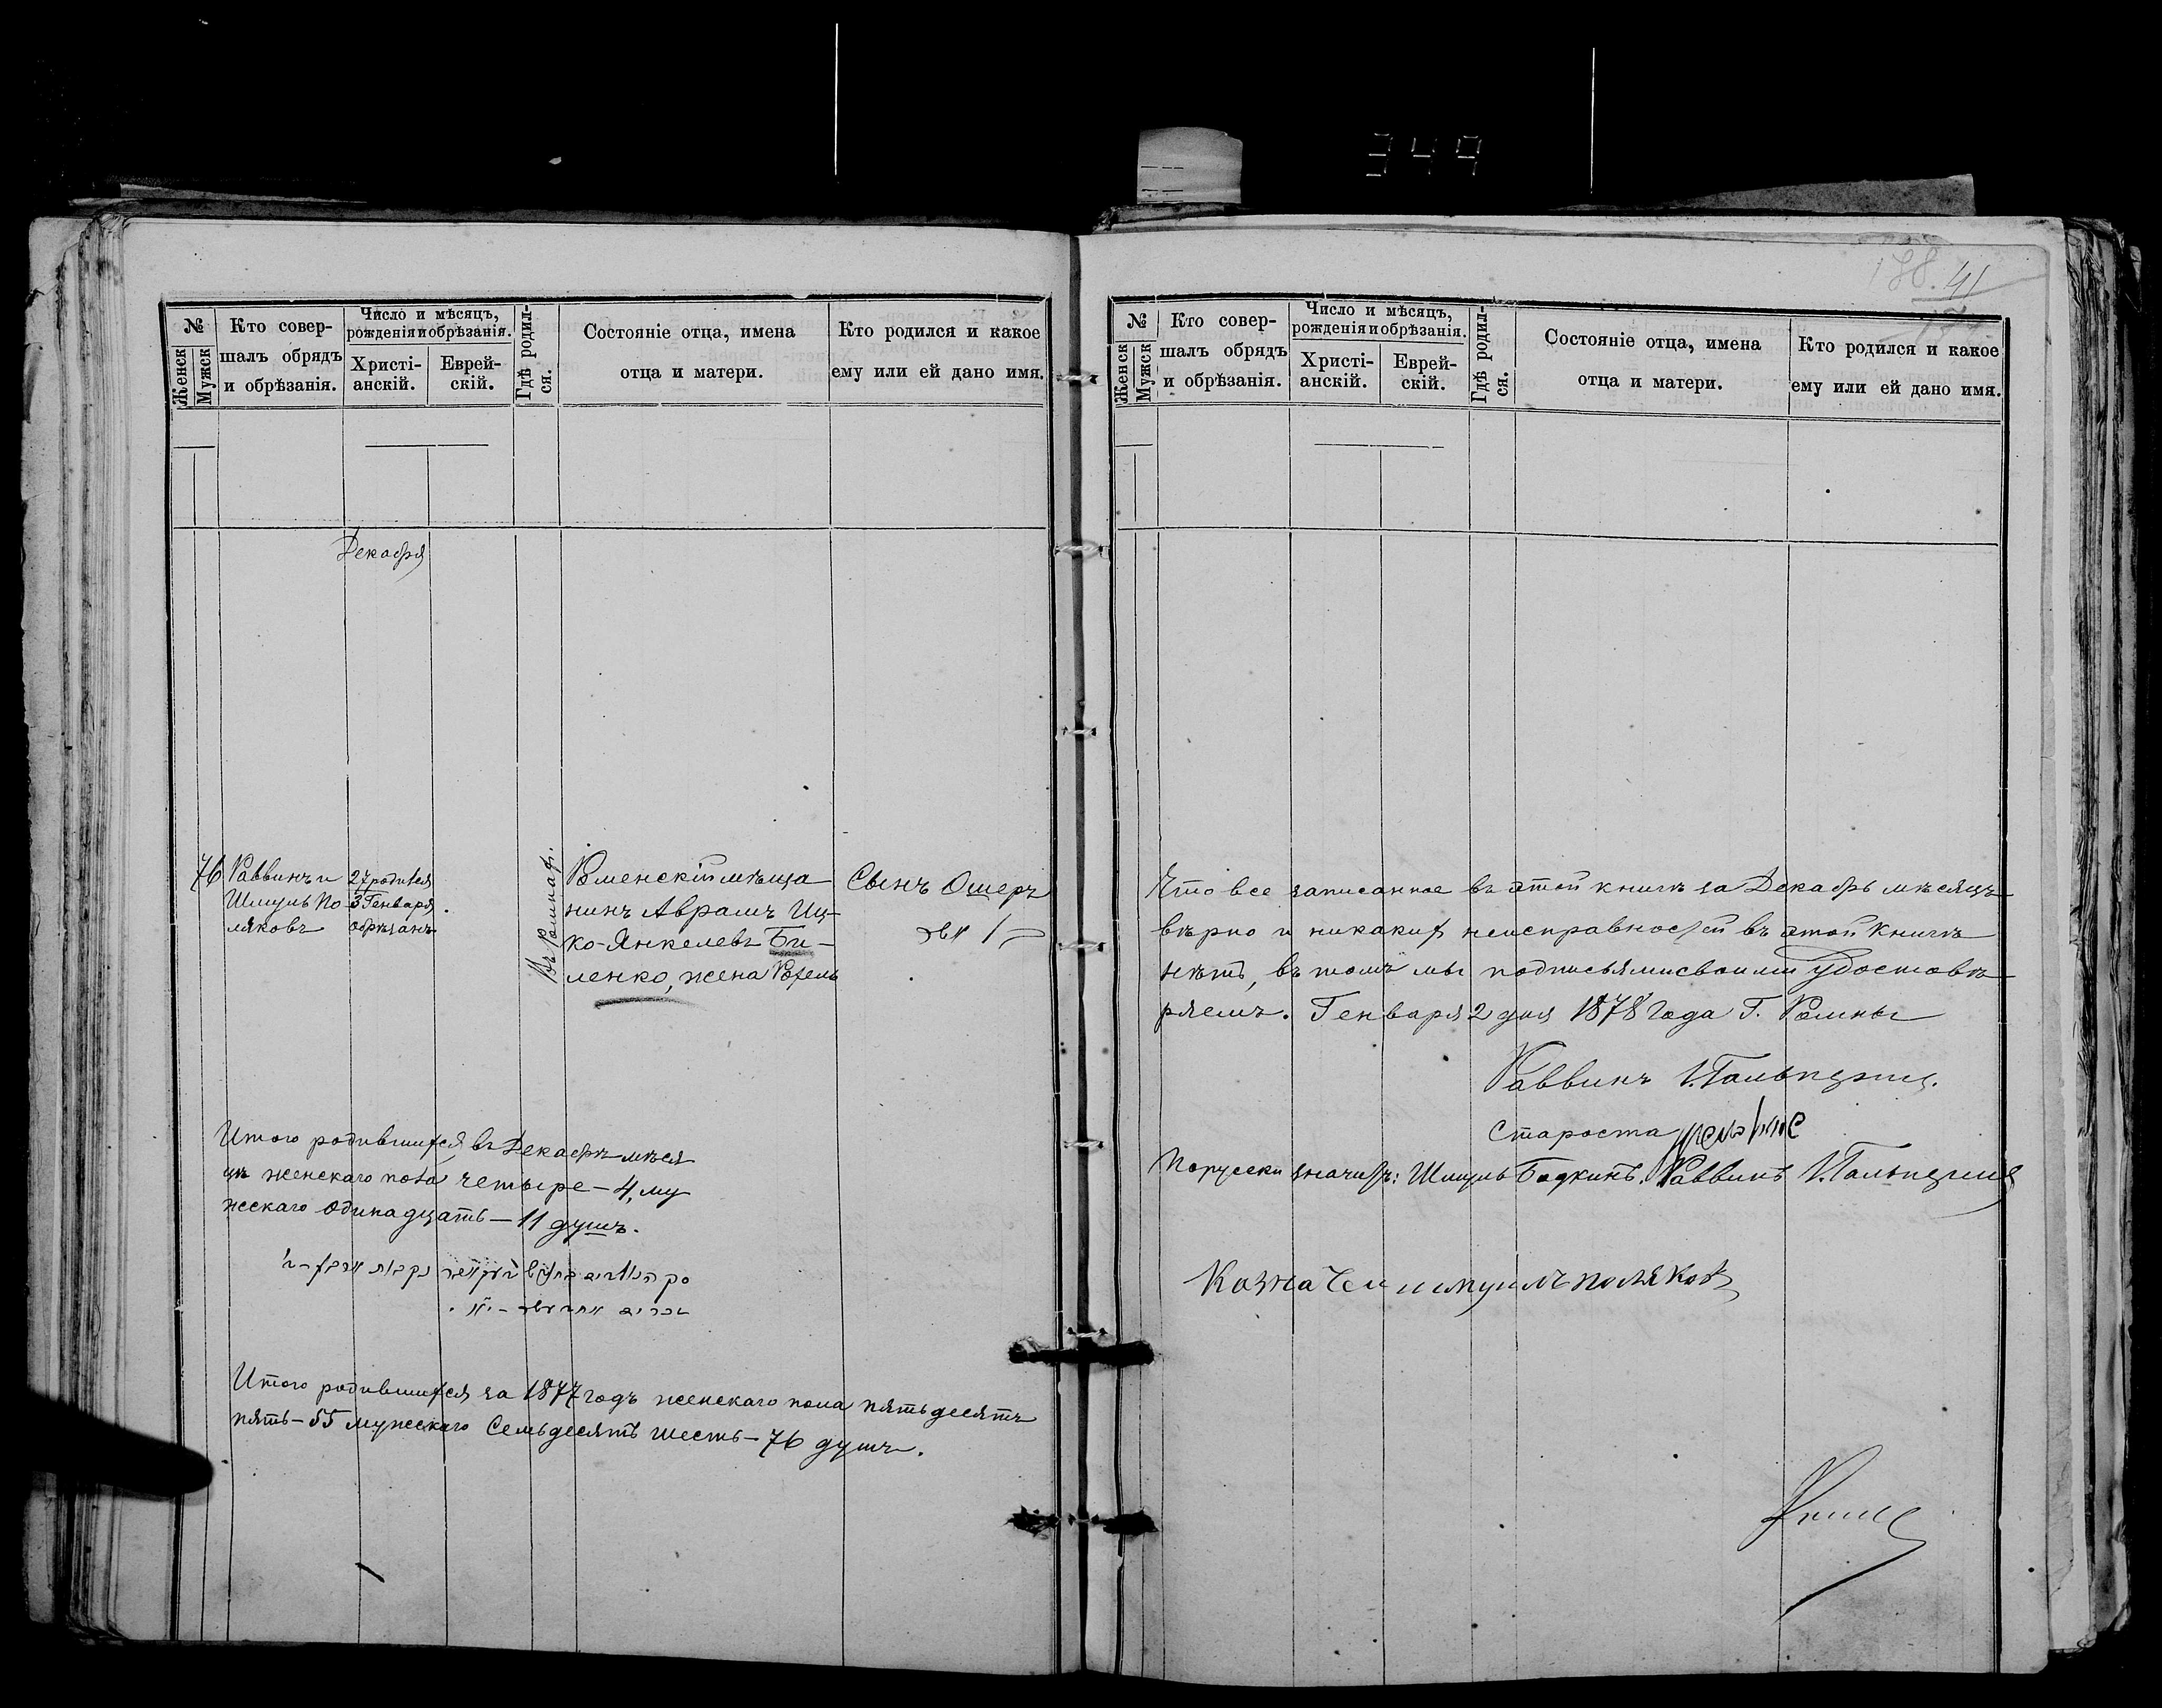 349
188. 41
№
Женск
Мужск
Кто совер-
шалъ обрядъ
и обрѣзанія.
Число и мѣсяцъ,
рожденія и обрѣзанія.
Христі-
анскій.
Еврей-
скій.
Гдѣ родил-
ся.
Состояніе отца, имена
отца и матери.
Кто родился и какое
ему или ей дано имя.
Декабря
76
Раввинъ и
Шмуль По
ляковъ
27 родился
3 Генваря
обрѣзанъ
Въ Ромнах.
Роменскій мѣща
нинъ Аврамъ Иц-
ко-Янкелевъ Би-
ленко, жена Рохель
Сынъ Ошеръ
בן אשר
Итого родившихся въ Декабрѣ мѣся
цѣ женскаго пола четыре - 4, му
жескаго одинадцать - 11 душъ.
Итого родившихся за 1877 годъ женскаго пола пятьдесятъ
пять - 55 мужескаго Семьдесятъ шесть - 76 душъ.
№
Женск
Мужск
Кто совер-
шалъ обрядъ
и обрѣзанія.
Число и мѣсяцъ,
рожденія и обрѣзанія.
Христі-
анскій.
Еврей-
скій.
Гдѣ родил-
ся.
Состояніе отца, имена
отца и матери.
Кто родился и какое
ему или ей дано имя.
Что все записанное въ этой книгѣ за Декабрь мѣсяцъ
вѣрно и никаких неисправностей въ этой Книгѣ
нѣтъ, въ томъ мы подписьями своими удостовѣ
ряемъ. Генваря 2 дня 1878 Года Г. Ромны
Раввинъ И. Гальперин.
Староста
Порусски значитъ: Шмуль Бодкинъ. Раввинъ И. Гальперинъ
Казначеи шмуилъ поляковъ